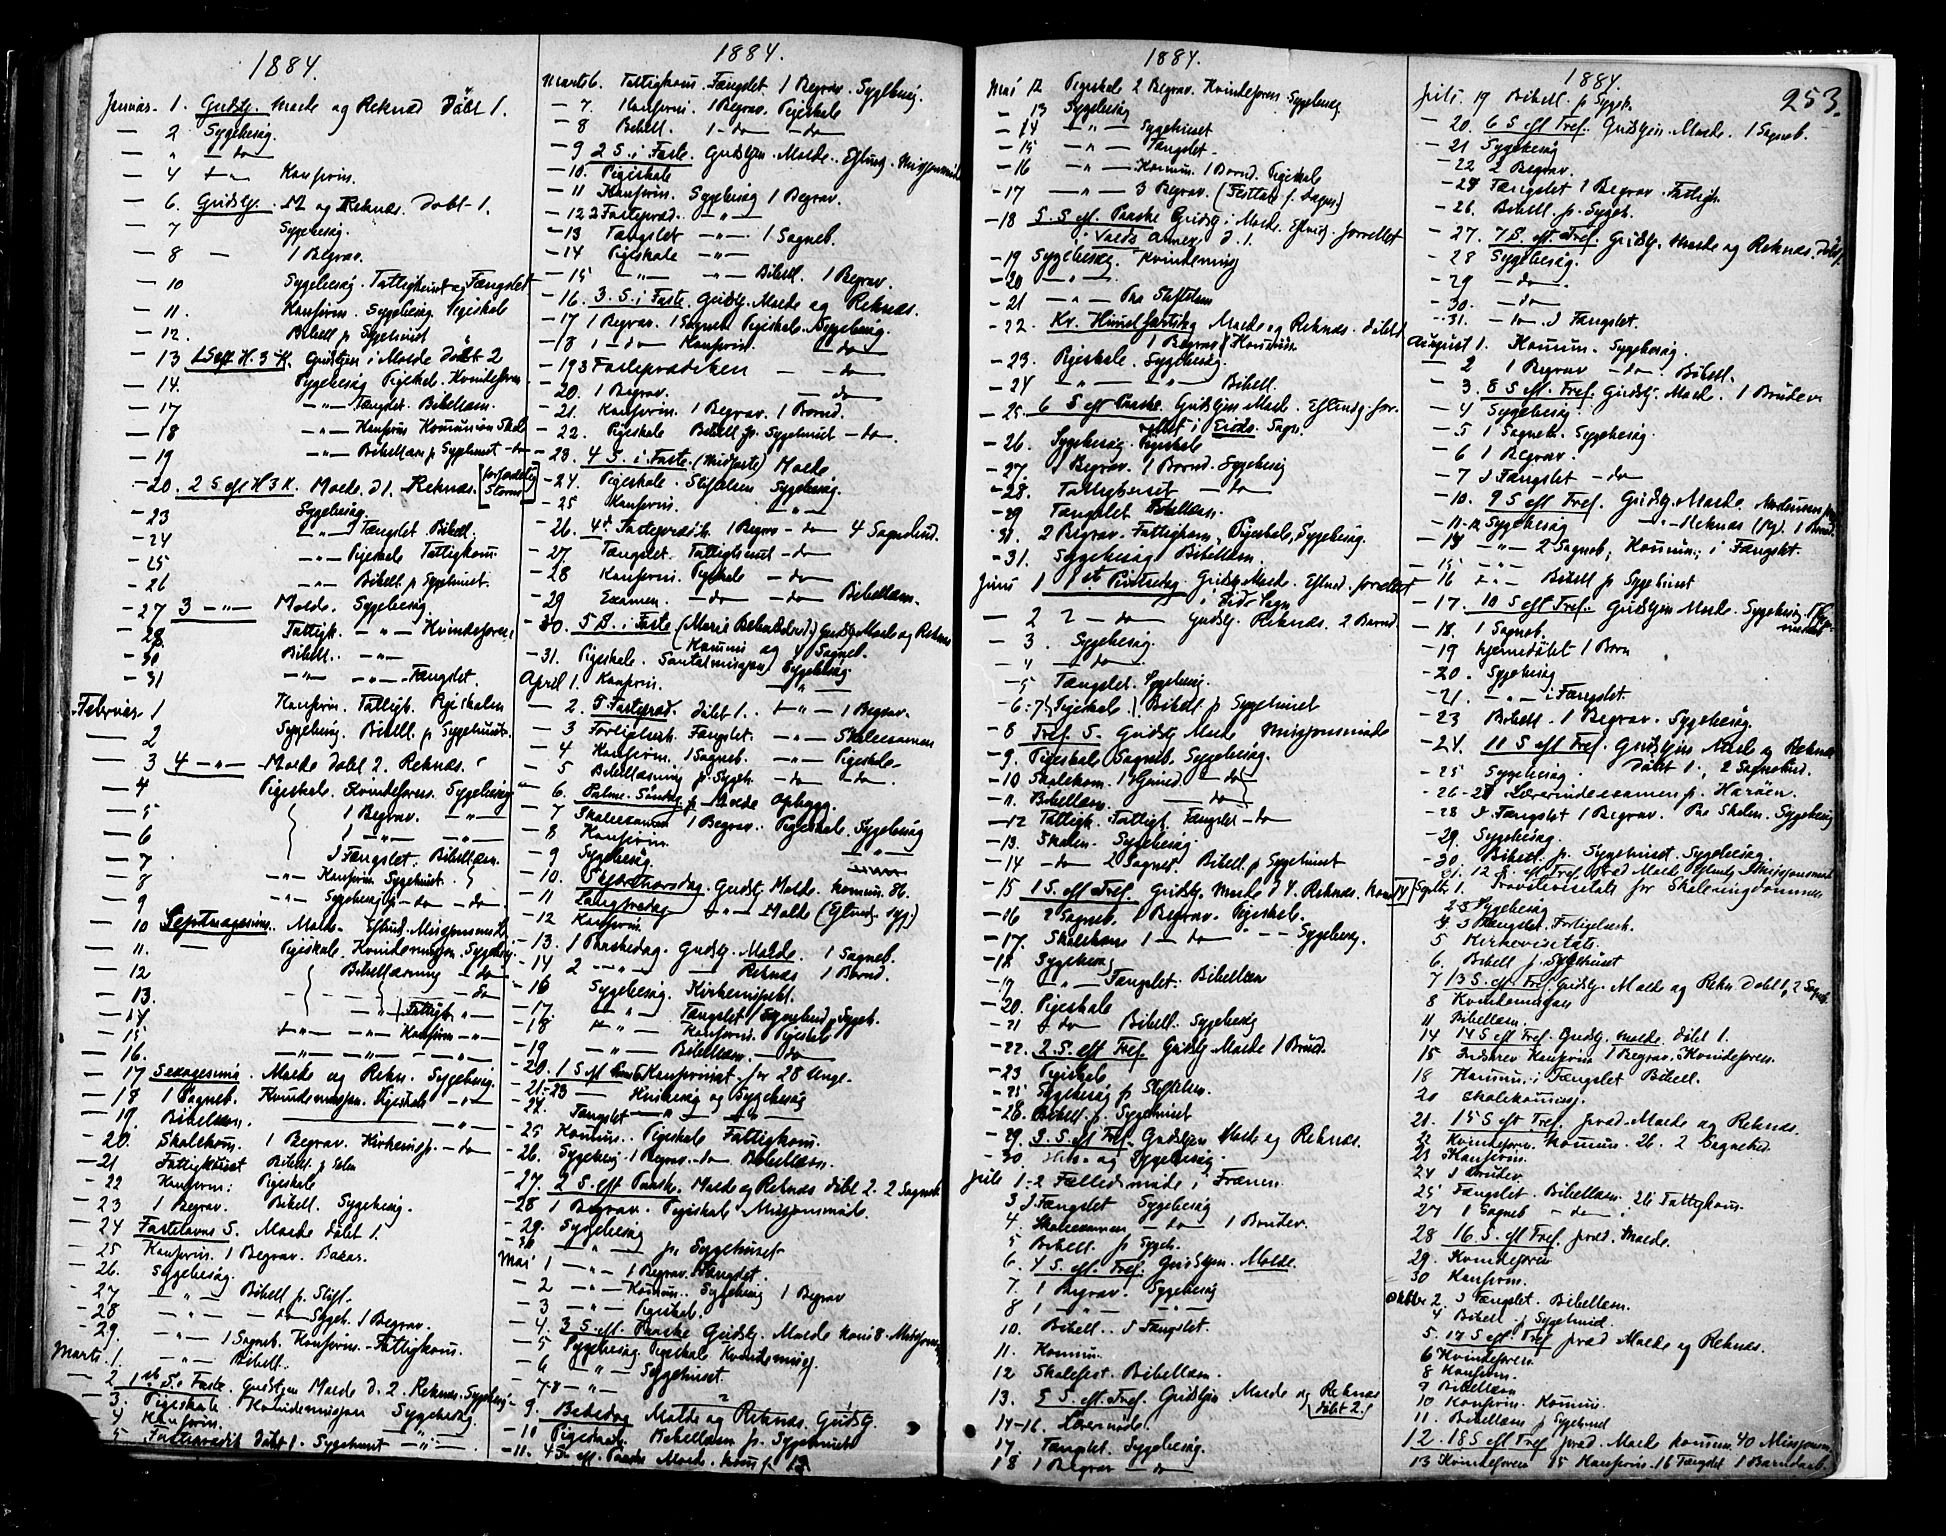 1884.
Januar. 1. Gudstj. Molde og Reknæs Døbt 1.
— 2 Sygebesøg.
— " — do
— 4 — " — Konfirm.
— 6. Gudstj. M og Reknæs. Døbt 1.
— 7 Sygebesøg.
— 8 — 1 Begrav.
— 10 Sygebesøg. Fattighuset og Fængslet
— 11. Konfirm. Sygebesøg. Pigeskole
— 12. Bibell p Sygehuset
— 13 1 S eft H. 3 K. Gudstjen i Molde Døbt 2
— 14. Sygebesøg Pigeskol. Kvindeforen
— 17 — " — Fængslet. Bibellæsn.
— 18 — " — Konfirm Komunion Skole
— 19 — " — Bibellæsn p Sygehuset — do
— 20. 2 S eft H 3 K. Molde. D 1. Reknæs. [forfærdelig Storm]
— 23 Sygebesøg.
— 24 — " — Fængslet Bibell.
— 25 — " — Pigeskole Fattigkom.
— 26 — " — Bibell. p Sygehuset.
— 27 3 — " — Molde. Sygebesøg.
— 28 Fattigk. — " — Kvindeforen.
— 30 Bibell. — " —
— 31 — " — " — Fængslet.
Februar 1 Konfirm. Fattigh. Pigeskolen
— 2 Sygebesøg. Bibell. p Sygehuset.
— 3 4 — " — Molde Døbt 2. Reknæs.
— 4 Pigeskole. Kvindeforen. Sygebesøg
— 5 1 Begrav. — " —
— 6 1 — " — — " —
— 7 I Fængslet. Bibellæsn.
— 8 — " — Konfirm Sygehuset.
— 9 — " — Sygebesøg — do — do
— 10 Septuagesima. Molde. Eftmd. Missionsmøde
— 11. Pigeskole. Kvindemission. Sygebesøg
— 12 Bibellæsning — do
— 13. — — — — do
— 14 Fattigh — " —
— 15 — " — — " — Konfirm — " —
— 16. — " — " — " — " —
— 17 Sexagesima. Molde og Rekn. Sygebesøg.
— 18 1 Sogneb. Kvindemission. Pigeskole — " —
— 19. Bibellæsn. — " —
— 20. Skolekom. 1 Begrav. Kirkeinsp. — do
— 21 Fattighuset Bibell.
— 22 Konfirm. Pigeskole
— 23 1 Begrav. Bibell. Sygebesøg.
— 24 Fastelavns S. Molde Døbt 1.
— 25 Konfirm. 1 Begrav. Bazar.
— 26. Sygebesøg.
— 27 — " — Bibell p. Stift.
— 28 — " — do Sygeh. 1 Begrav.
— 29. — " — 1 Sogneb. Konfirm. Fattigkom.
Marts. 1 — " — Bibell.
— 2 1ste S. i Faste. Gudstjen Molde D. 2. Reknæs. Sygebesøg
— 3. Pigeskole Kvindemission Sygebesøg
— 4 Konfirm.
— 5 Fasteprædik Døbt 1. Sygehuset — " —
1884.
Marts 6. Fattigkom. Fængslet 1 Begrav. Sygebesøg.
— 7. Konfirm. 1 Begrav. Pigeskole
— 8 Bibell. 1 — do — do
— 9 2 S. i Faste. Gudstjen. Molde. Eftmdg. Missionsmøde
— 10. Pigeskole
— 11 Konfirm. Sygebesøg 1 Begrav.
— 12 2 Fastepræd. — " —
— 13 Fængslet — " — 1 Sogneb.
— 14 Pigeskole — " —
— 15 — " — — " — Bibell. 1 Begrav.
— 16. 3. S. i Faste. Gudstj. Molde og Reknæs.
— 17 1 Begrav. 1 Sogneb Pigeskole. Sygebesøg.
— 18 1 — do Konfirm. — do
— 19 3 Fasteprædiken — — do
— 20. 1 Begrav. — do
— 21. Konfirm. 1 Begrav. 1 Barnd.
— 22. Pigeskole Bibell p. Sygehuset — do.
— 23. 4 S. i Faste. (Midfaste) Molde
— 24. Pigeskole. Stiftelsen Sygebesøg.
— 25 Konfirm. — " —
— 26. 4de Fasteprædik. 1 Begrav — do — 4 Sognebud.
— 27 Fængslet. Fattighuset — do
— 28 Konfirm. Pigeskole — do
— 29 Examen. — do — do Bibellæsn.
— 30. 5 S. i Faste Gudstj. Molde og Reknæs
Kommun og 4 Sogneb.
— 31. Pigeskole. Santalmission Sygebesøg
April 1. Konfirm. — " —
— 2. 5 Fastepræd. Døbt 1. — " — 1 Begrav.
— 3 Forligelsesk. Fængslet. — " — Skoleexamen
— 4 Konfirm. 1 Sogneb. — " — Pigeskole
— 5 Bibellæsning p. Sygeh. — do — do.
— 6. Palme-Søndag p Molde Ophygg.
— 7 Skoleexamen 1 Begrav. Pigeskole. Sygebesøg
— 8 Konfirm. — " —
— 9 Sygebesøg.
— 10. Skjærthorsdag. Gudstj. Molde. Komun. 86.
— 11 Langfredag — " — Molde
— 12 Konfirm.
— 13. 1 Paaskedag. Gudstj. Molde. 1 Sogneb.
— 14 2 — " — — Reknæs 1 Barnd.
— 16 Sygebesøg. Kirkeinspekt.
— 17. — " — Fængslet Sognebud p Sygeh.
— 18 — " — Konfirm. Pigeskol
— 19 — " — Bibellæsn. — do
— 20. 1 S eft Paaske Konfirmat. for 28 Unge.
— 21-23 — Husbesøg og Sygebesøg
— 24. Fængslet — " —
— 25 Komun. Pigeskole Fattigkom.
— 26. Sygebesøg. 1 Begrav. — do Bibellæsn.
— 27. 2 S. eft Paaske. Molde og Reknæs Døbt 2. 2 Sogneb
— 28 1 Begrav. Pigeskole Missionsmøde.
— 29. Sygebesøg
— 30 — " — p. Sygehuset
Mai 1 — " — 1 Begrav. Fængslet.
— 2 — " — Komun. Sygebesøg 1 Begrav
— 3 — " — Pigeskol.
— 4. 3 S. eft. Paaske Gudstj. Molde kom 8. Missionsm.
— 5 Sygebesøg. Pigeskole Kvindemiss.
— 6 — " — Sygehuset.
— 7-8 — " —
— 9. Bededag Molde og Reknæs. Gudstj.
— 10 Pigeskole Bibellæsn p. Sygehuset
— 11. 4 S. eft. Paaske Molde. Kom f. 13.
1884.
Mai 12 Pigeskole 2 Begrav. Kvindeforen. Sygebesøg
— 13 Sygebesøg
— 14 — " — Sygehuset
— 15 — " — Fængslet.
— 16 — " — Komun. 1 Barnd. Pigeskole
— 17 — " — 3 Begrav. (Festtale f. Dagen.)
— 18 5. S eft. Paaske Gudstj i Molde. Eftmdg. forrettet
i Vaads Annex. D. 1.
— 19 Sygebesøg. Kvindemiss
— 20 — " —
— 21 — " — Paa Stiftelsen
— 22. Kr. Himmelfartsdag Molde og Reknæs. Døbt 1
1 Begrav. Komunion
— 23. Pigeskole. Sygebesøg.
— 24 — " — — " — Bibell.
— 25. 6 S eft Paaske Gudstjen Molde. Eftmdg. for-
rettet i Eids. Sogn.
— 26. Sygebesøg. Pigeskole
— 27. 1 Begrav. 1 Barnd. Sygebesøg
— 28. Fattighuset — do
— 29 Fængslet Bibellæsn.
— 30. 2 Begrav. Fattigkom. Pigeskole. Sygebesøg.
— 31. Sygebesøg Bibellæsn.
Juni 1 1ste Pintsedag Gudstj Molde. Eftmd. forrettet
i Eids Sogn
— 2 2 — do Gudstj. Reknæs. 2 Barnd.
— 3. Sygebesøg.
— " — do
— 5 Fængslet. Sygebesøg.
— 6-7 Pigeskole Bibell p Sygehuset
— 8 Tref. S. Gudstj Molde Missionsmøde
— 9. Pigeskole Sogneb. Sygebesøg.
— 10 Skolekom. — do
— 11. Bibellæsn. — do
— 12 Fattigk. Fattigh. Fængslet — do
— 13. Skolen. Sygebesøg.
— 14 — do 2 Sogneb. Bibell. p Sygehuset
— 15 1 S. eft Tref. Gudstj. Molde D 4. Reknæs.
— 16 2 Sogneb. 1 Begrav. Pigeskole.
— 17. Skolekom 1 — do — — Sygebesøg.
— 18 Sygebesøg
— 19 — " — Fængslet. Bibellæsn
— 20. Pigeskole
— 21 — do Bibell. Sygebesøg
— 22. 2. S. eft Tref. Gudstj Molde 1 Brud.
— 23 Pigeskole
— 25 Sygebesøg p Stiftelsen.
— 28. Bibell. p. Sygehuset
— 29. 3. S. eft Tref. Gudstjen Molde og Reknæs.
— 30 Hus- og Sygebesøg.
Juli 1-2 Fællesmøde i Frænen.
3 I Fængslet Sygebesøg
4. Skoleexamen — do 1 Brudev.
5 Bibell. p Sygeh.
6. 4 S. eft. Tref. Gudstjen. Molde.
7. 1 Begrav. Sygebesøg
8 1 — " — — " —
10. Bibell. I Fængslet.
11. Komun.
12 Skolefest. Bibellæsn.
13. 5 S. eft. Tref. Gudstjen. Molde og Reknæs
Døbt 2.
14-16. Lærermøde.
17. Fængslet. Sygebesøg.
18 1 Begrav — do
253.
1884.
Juli. 19 Bibell. p Sygeh.
— 20. 6 S eft Tref. Gudstjen. Molde. 1 Sogneb.
— 21 Sygebesøg
— 22 2 Begrav.
— 24 Fængslet 1 Begrav. Fattigh.
— 26. Bibell. p. Sygeh.
— 27. 7 S. eft. Tref. Gudstj. Molde og Reknæs. Døbt 1.
— 28 Sygebesøg.
— 29 — do
— 30. — do
— 31. — do. I Fængslet.
August 1. Komun. Sygebesøg.
— 2 1 Begrav — do Bibell.
— 3. 8 S eft. Tref. Gudstj. Molde. 1 Brudev
— 4 Sygebesøg
— 5 1 Sogneb. Sygebesøg.
— 6 1 Begrav.
— 7 I Fængslet — do
— 10. 9 S eft Tref. Gudstj Molde.
— 11-12 Sygebesøg — " — Reknæs 1 Barnd.
— 14 — " — 2 Sogneb; Komun; i Fængslet.
— 15 — " —
— 16 — " — Bibell p Sygehuset
— 17. 10 S eft Tref. Gudstjen Molde. Sygebesøg
— 18. 1 Sogneb.
— 19 hjemmedøbt 1 Barn
— 20. Sygebesøg
— 21. — " — i Fængslet.
— 23 Bibell. 1 Begrav. Sygebesøg.
— 24. 11 S eft Tref. Gudstjen Molde og Reknæs
Døbt 1., 2 Sognebud.
— 25 Sygebesøg.
— 26-27 Lærerindeexamen p. Harøen.
— 28 I Fængslet 1 Begrav. Paa Skolen. Sygebesøg
— 29. Sygebesøg.
— 30. Bibell. p. Sygehuset. Sygebesøg
— 31. 12 S. eft Tref. Præd Molde Eftmdg Missionsmøde
Septbr. 1. Provstevisitats
2-3 Sygebesøg
4. I Fængslet. Forligelsesk.
5 Kirkevisitats.
6. Bibell p. Sygehuset
7 13 S. eft Tref. Gudstj. Molde og Rekn Døbt 1, 2 Sogneb.
8 Kvindemission
11 Bibellæsn.
14 14 S eft Tref. Gudstj. Molde. Døbt 1.
15 Indskrev Konfirm 1 Begrav. Kvindeforen.
18 Komun. i Fængslet Bibell.
20 Skolekomiss.
21. 15 S eft Tref. præd. Molde og Reknæs.
22 Kvindeforen. Komun. 26. 2 Sognebud.
23 Konfirm.
24 1 Brudev
25 Fængslet. Bibellæsn. 26 Fattigkom.
27 1 Sogneb — do
28 16. S. eft Tref. præd. Molde.
29. Kvindeforen
30 Konfirm.
Oktbr 2. I Fængslet. Bibellæsn.
4 Bibell p Sygehuset
5. 17 S eft Tref præd Molde og Reknæs.
6 Kvindeforen
8 Konfirm.
9 Bibellæsn
10 Konfirm. Komun.
11. Bibellæsn p Sygehuset
12. 18 S eft Tref præd. Molde Komun. 40 Missionsm.
13 Kvindeforen 15 Konfirm. 16 Fængslet 1 Barndaab.